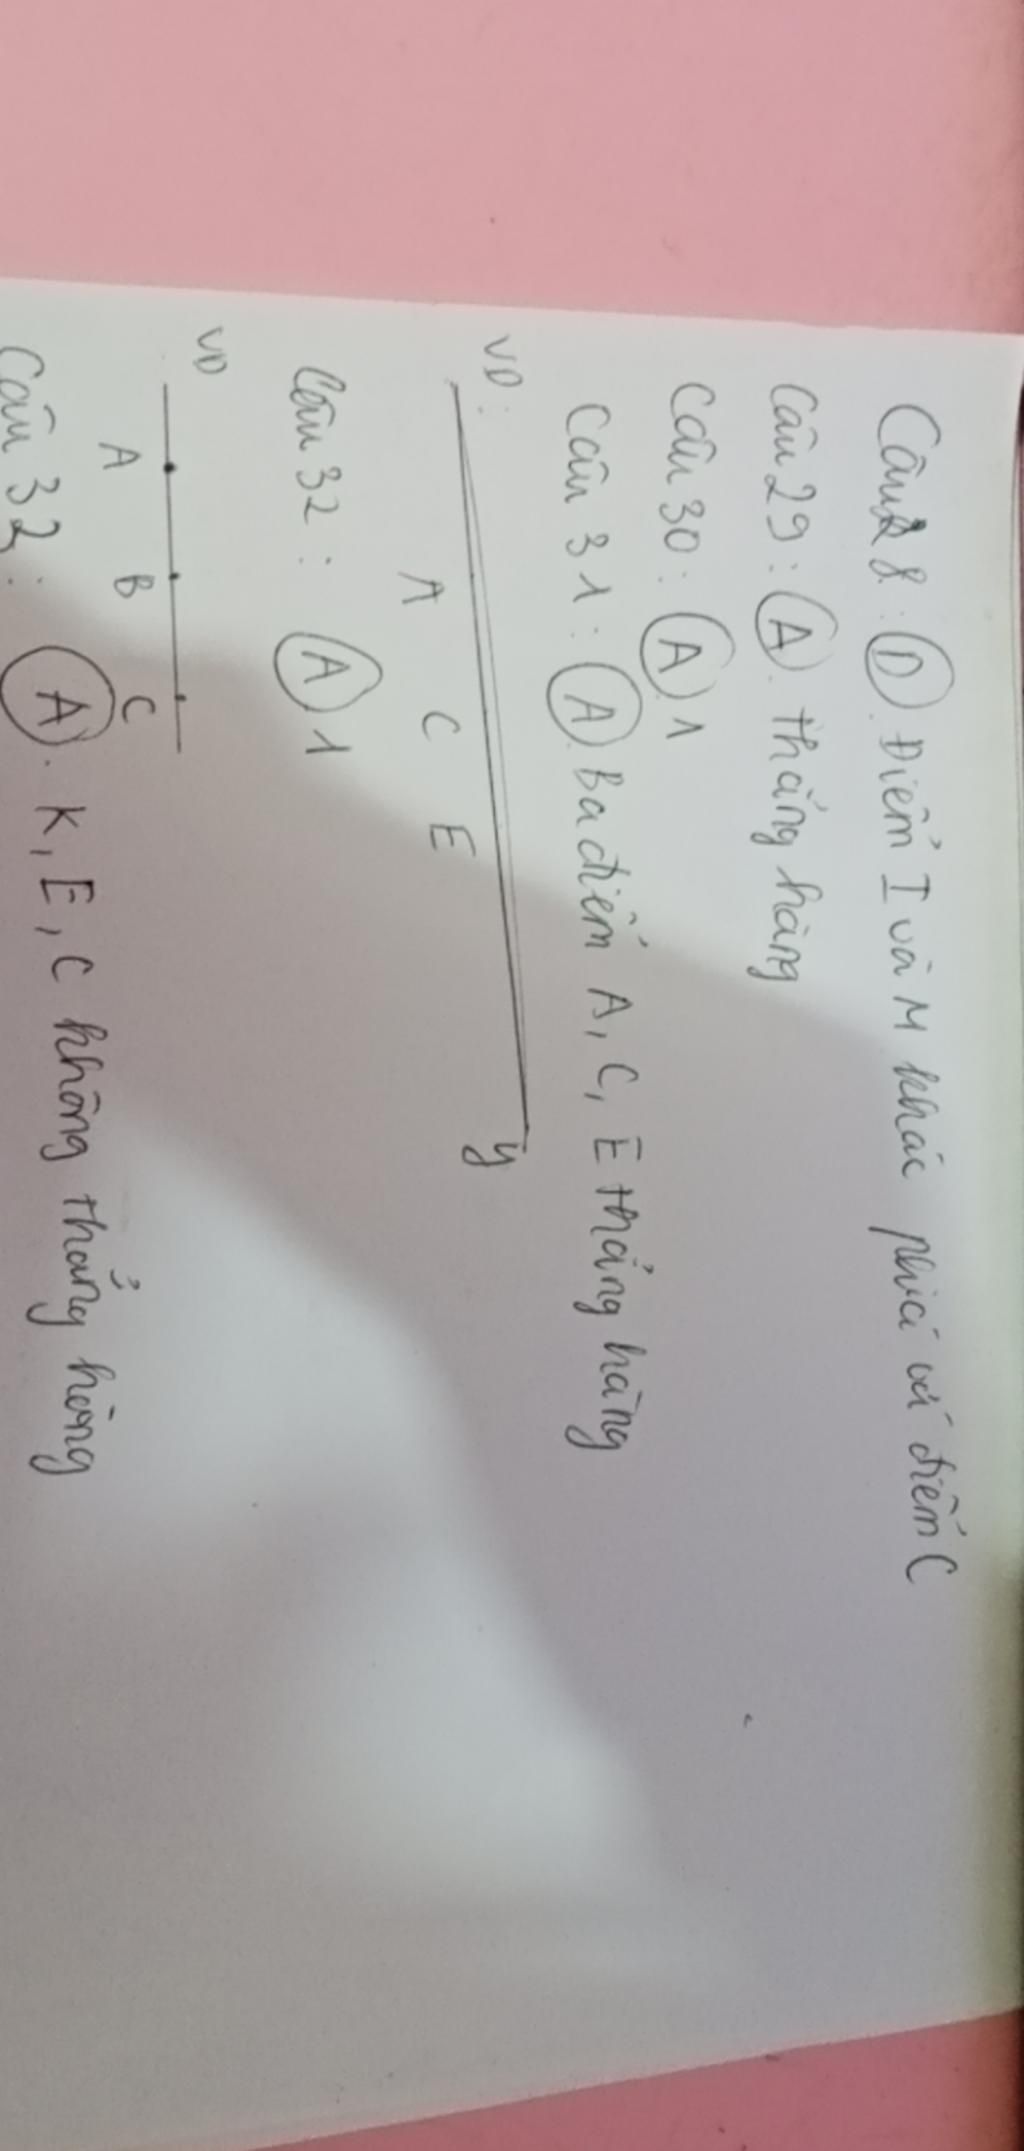 Câu 28: D. Điểm I và M khác phía với điểm C
Câu 29: A. thẳng hàng
Câu 30: A) 1
Câu 31: A. Ba điểm A, C, E thẳng hàng
VD:
y
A C E
Câu 32: A) 1
VD
A B C
Câu 33: A). K, E, C không thẳng hàng